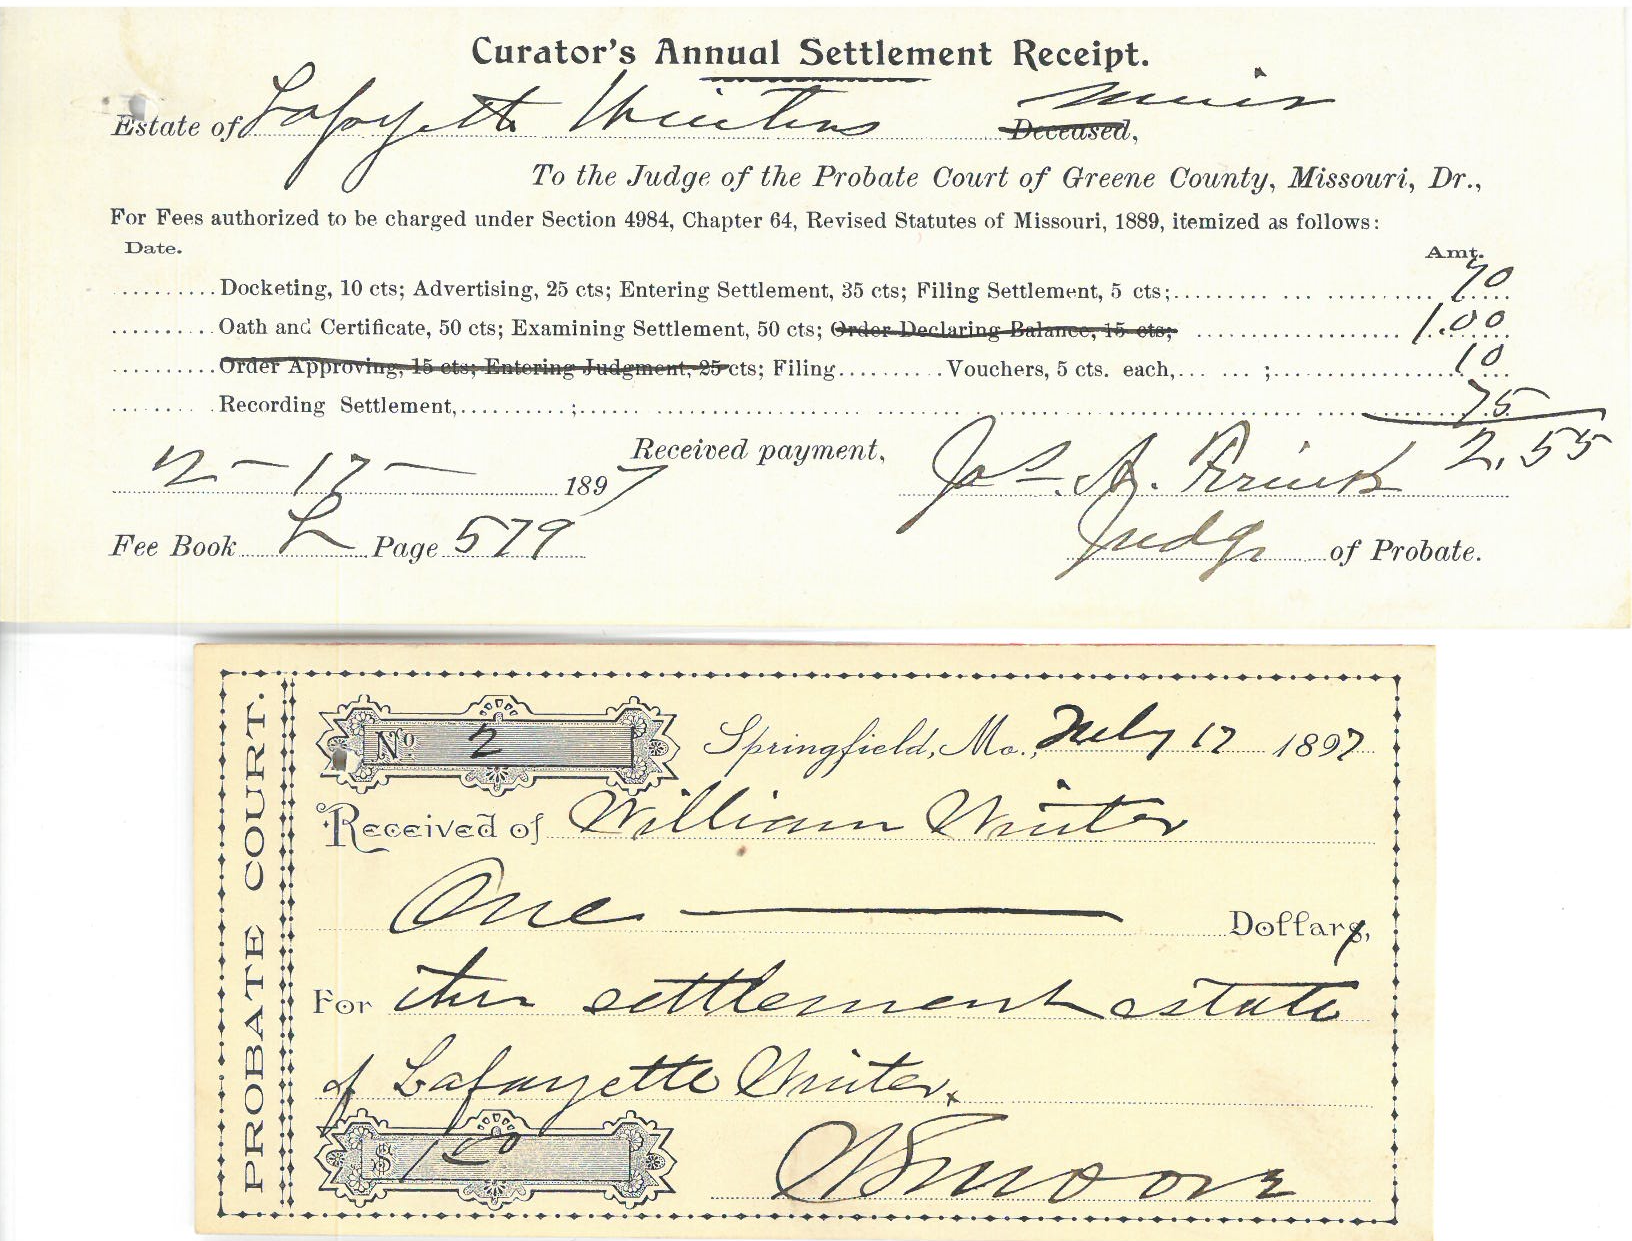 Curator's Annual Settlement Receipt.
Estate of Lafayette Winters Minor
Deceased,
To the Judge of the Probate Court of Greene County, Missouri, Dr.,
For Fees authorized to be charged under Section 4984, Chapter 64, Revised Statutes of Missouri, 1889, itemized as follows:
Date. Amt.
Docketing, 10 cts; Advertising, 25 cts; Entering Settlement, 35 cts; Filing Settlement, 5 cts; 70
Oath and Certificate, 50 cts; Examining Settlement, 50 cts; Order Declaring Balance, 15 cts; 1.00
Order Approving, 15 cts; Entering Judgment, 25 cts; Filing Vouchers, 5 cts. each, ; 10
Recording Settlement, ; 75
2.55
Received payment,
2-17- 1897 Jos. A.
Fee Book L Page 579 Judge of Probate.
PROBATE COURT.
No 2 Springfield, Mo., Feby 17 1897
Received of William Winter
One Dollars,
For settlement estate
of Lafayette Winter.
$ 1 00 Moore